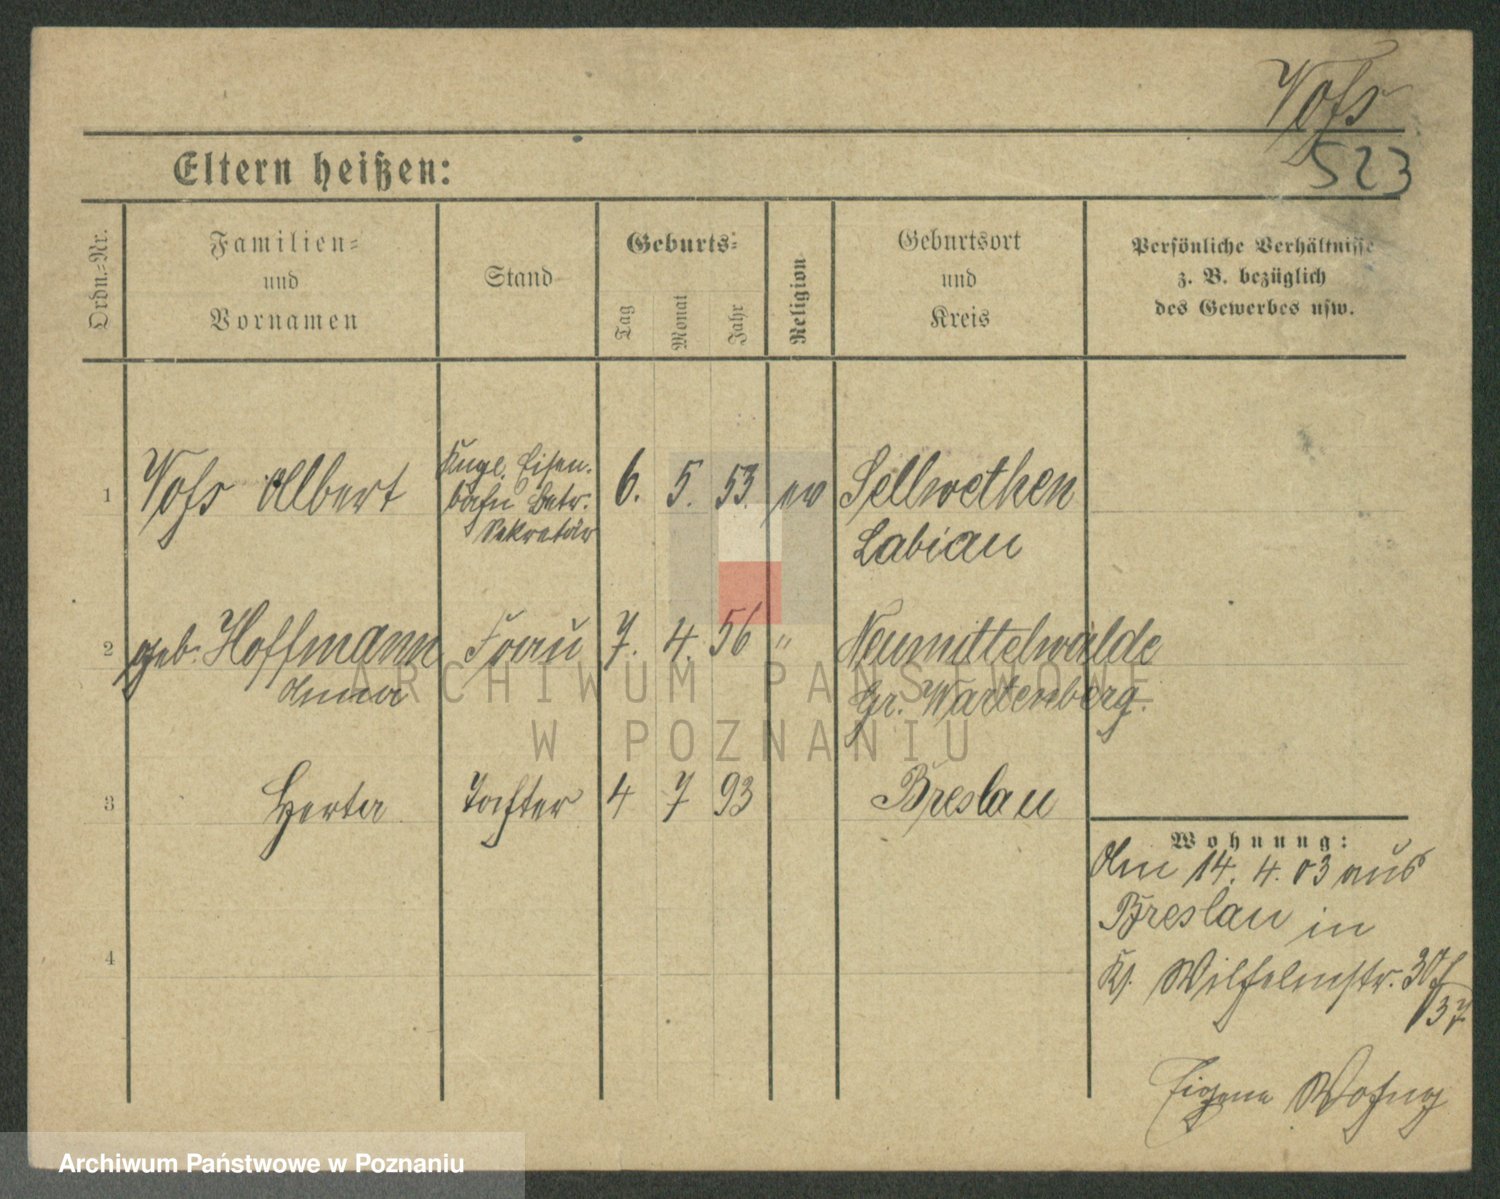 Voß
523
Eltern heißen:
Ordn.-Nr.
Familien-
und
Vornamen
Stand
Geburts-
Tag
Monat
Jahr
Religion
Geburtsort
und
Kreis
Persönliche Verhältnisse
z. B. bezüglich
des Gewerbes usw.
1 Voß Albert
Kngl. Eisen-
bahn Betr.
Sekretär
6. 5. 53. ev
Sellwethen
Labiau
2 geb. Hoffmann
Anna
Frau 7. 4. 56 "
Neumittelwalde
Gr. Wartenberg.
3 Herta Tochter 4 7 93 Breslau
4
Wohnung:
Am 14. 4. 03 aus
Breslau in
Wilhelmstr.
37
Eigene Wohng
ARCHIWUM PAŃSTWOWE
W POZNANIU
Archiwum Państwowe w Poznaniu